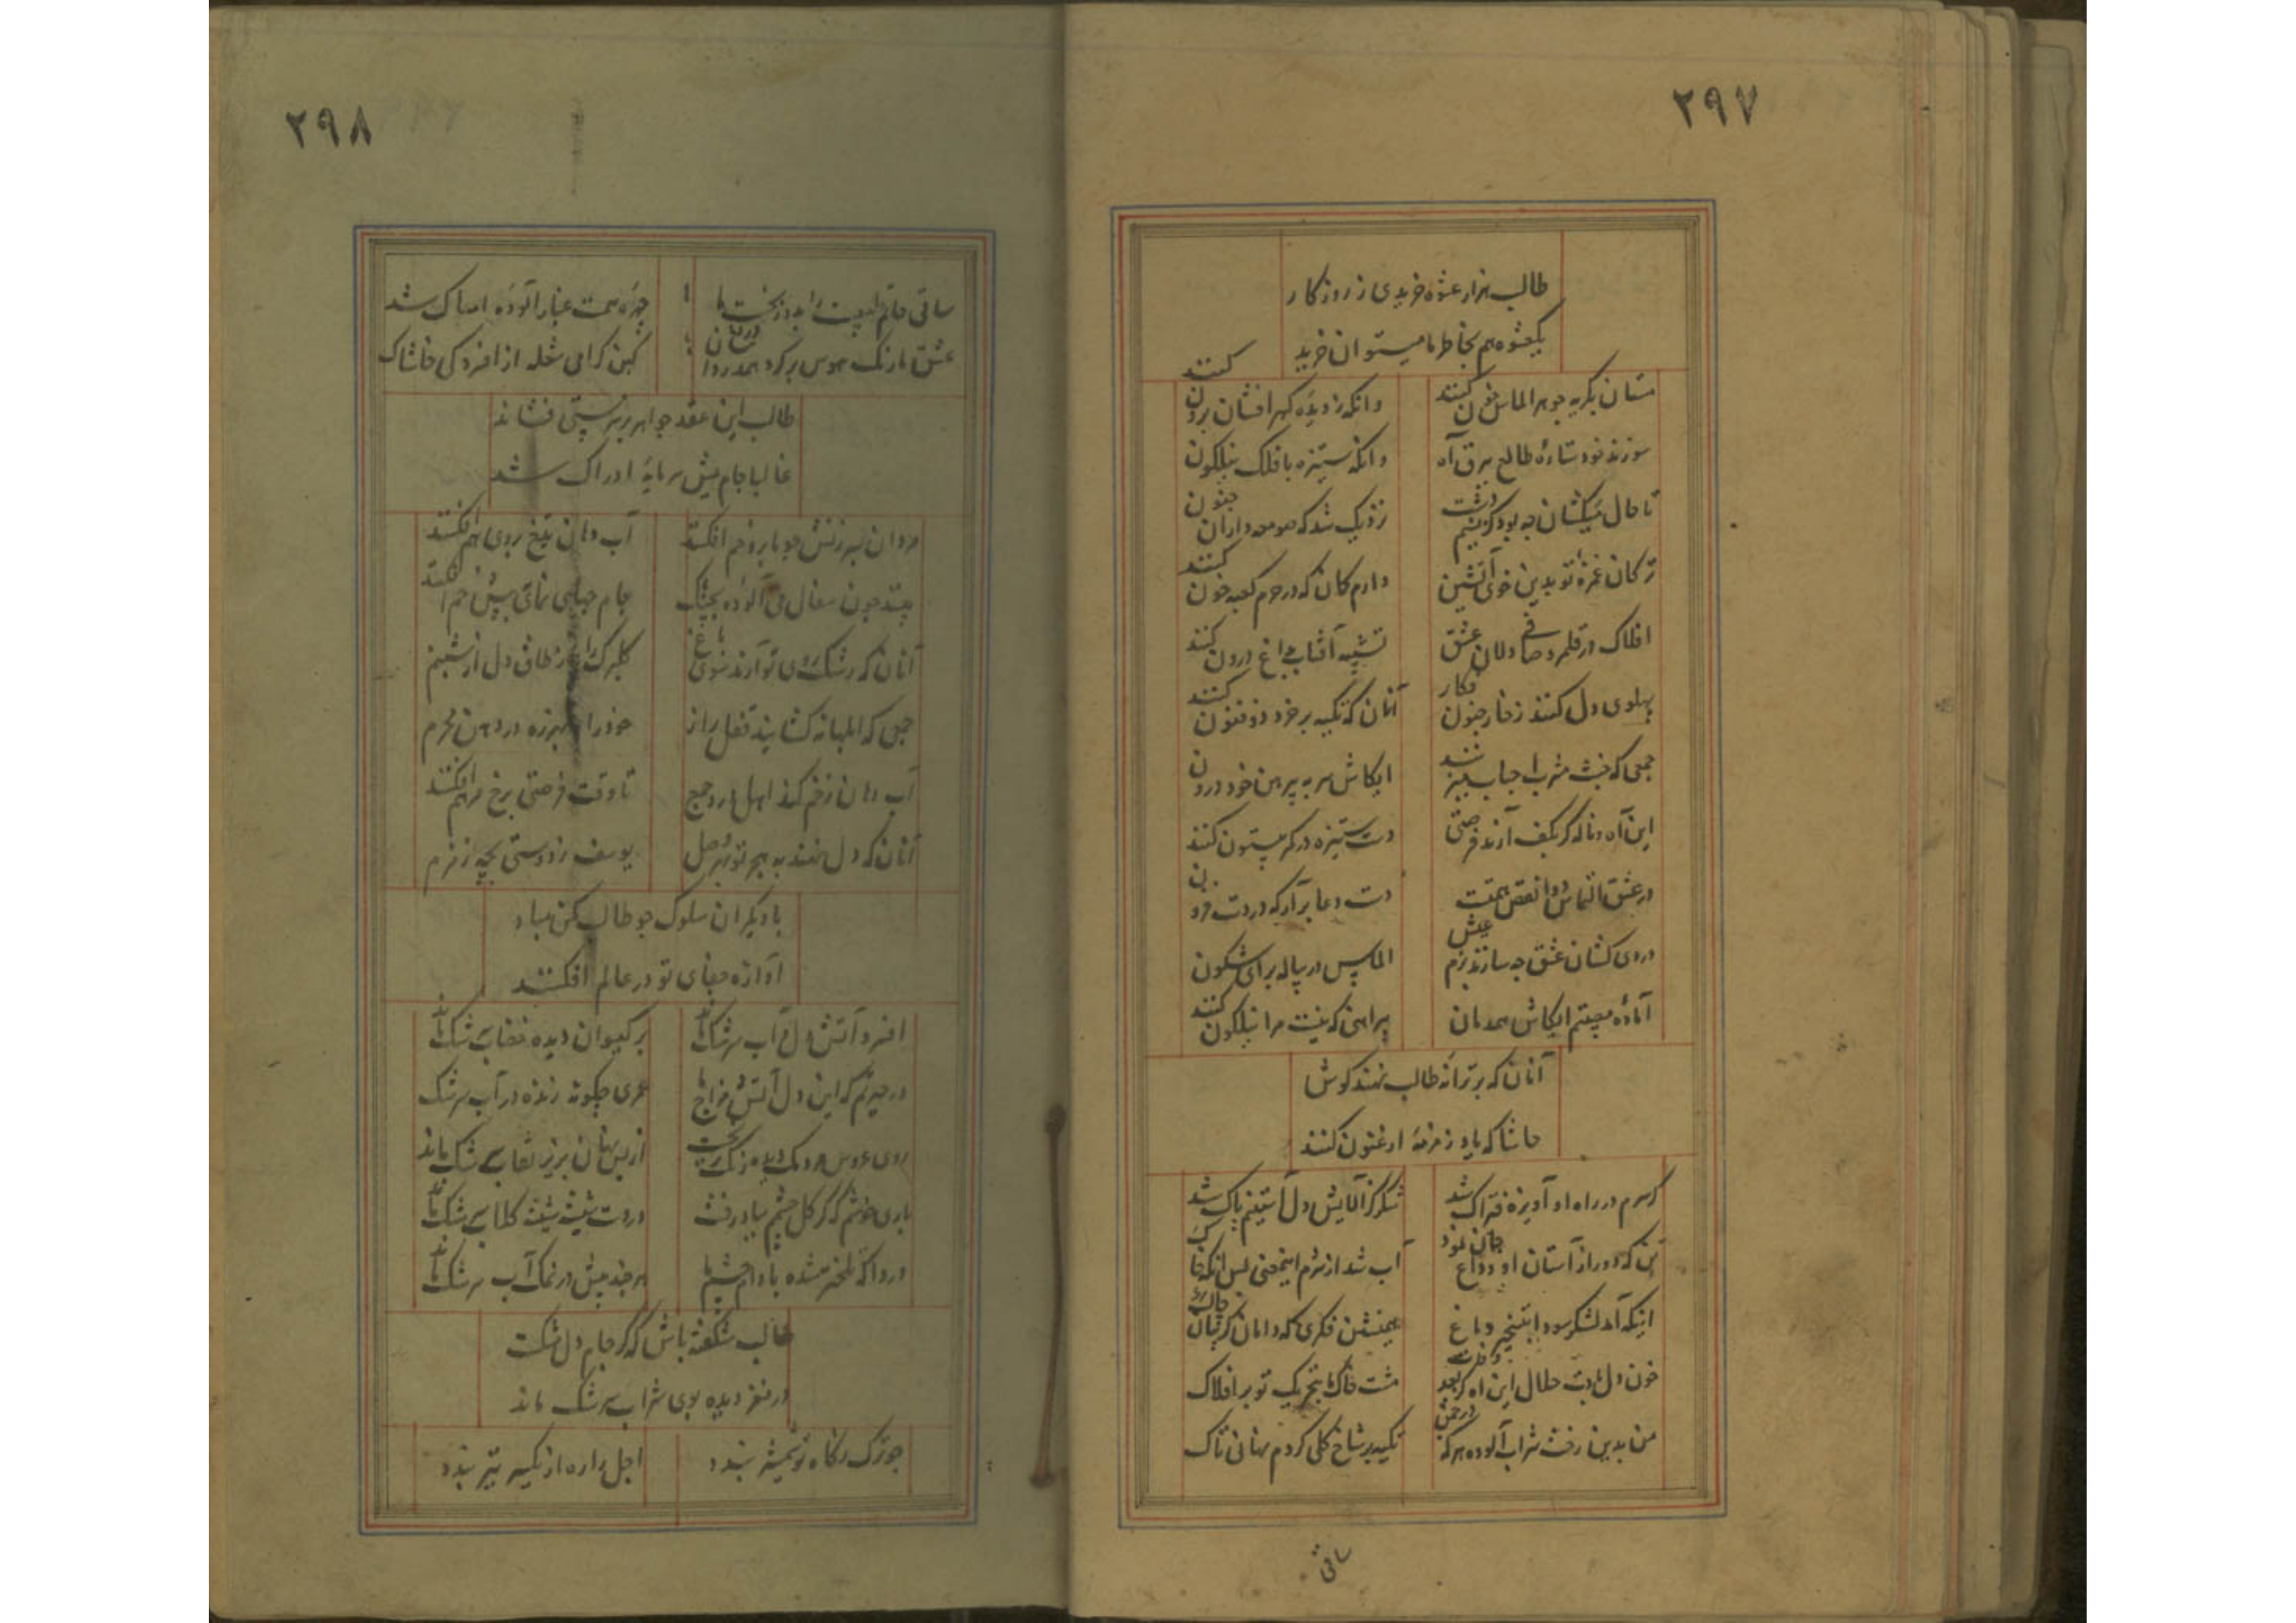 ۲۹۷
طالب هزار عشوه خریدی ز روزگار
یکعشوه هم بخاطر ما میتوان خرید
مستان بگریه جوهر الماس خون کنند وانگه ز دیده گهر افشان برون کنند
سوزند خود ستارهٔ طالع ببرق آه وانگه ستیزه با فلک نیلگون
تا حال میکشان چه بود کز نسیم دشت نزدیک شد که صومعه داران جنون
ترکان غمزهٔ تو بدین خوی آتشین دارم گمان که در حرم کعبه خون کنند
افلاک در قلمرو صافی دلان عشق تشبیه آفتاب بداغ درون کنند
پهلوی دل کنند ز خار جنون فکار آنان که تکیه بر خرد ذوفنون کنند
جمعی که خشت مشرب احباب میزنند ایکاش سر به پیرهن خود درون
این آه و ناله گر بکف آرند فرصتی دست ستیزه در کمر بیستون کنند
در عشق التماس دوا نقص همت است دست دعا برآر که دردت فزون
دردی کشان عشق چه سازند بزم عیش الماس در پیاله برای شگون
آمادهٔ مصیبتم ایکاش همدمان پیراهنی که نیست مرا نیلگون کنند
آنان که بر ترانهٔ طالب نهند گوش
حاشا که یاد زمزمهٔ ارغنون کنند
گر سرم در راه او آویزهٔ فتراک شد شکر کز آلایش دل آستینم پاک شد
که دور از آستان او وداع جان نمود آب شد از شرم اینمعنی
اینکه آمد لشکر سودا بتسخیر دماغ همنشین فکری که دامان گریبان چاک
خون دل بادت حلال این آه کز بعد وفات مشت خاک ما بتحریک تو بر افلاک
من بدین رخت شراب آلوده هر گه در چمن تکیه بر شاخ گلی کردم نهانی تاک
ساقی
۲۹۸
ساقی چهرهٔ همت غبار آلودهٔ امساک شد
عشق ما رنگ هوس بر کرد همدردان دریغ کین گرامی شعله از افسردگی خاشاک
طالب این عقد جواهر بر سر پستی فشاند
غالبا جام میش سرمایهٔ ادراک شد
مردان بسرزنش چو بابرو خم افکنند آب دهان تیغ بروی هم افکنند
چند چون سفال می آلوده بجنگ جام جهان نمای به پیش جم افکنند
آنان که رشک روی تو آرند سوی باغ گلبرگ را ز طاق دل از شبنم
جمعی که ابلهانه گشایند قفل راز خود را هرزه در دهن محرم
آب دهان زخم کند اهل درد جمع تا وقت فرصتی برخ مرهم افکنند
آنان که دل نهند به هجر تو بهر وصل یوسف ز دوستی بچه زمزم
با دیگران سلوک چو طالب مکن مباد
آوازهٔ جفای تو در عالم افکنند
افسرد آتش دل و آب سرشک ماند بر گیسوان دیده خضاب سرشک ماند
در حیرتم که این دل آتش مزاج ما عمری چگونه زنده در آب سرشک
روی عروس مردمک دیده رنگ ریخت از بس نهان بزیر نقاب سرشک ماند
باری خوشم که گر گل چشمم بباد رفت در دست شیشه شیشه گلاب سرشک ماند
دردا که تلختر شده بادام چشم ما هر چند بیش در نمک آب سرشک ماند
طالب شگفته باش که گر جام دل شکست
در مغز دیده بوی شراب سرشک ماند
چو ترک نگاه تو شمشیر بندد اجل را ره از نگسیر تیر بندد